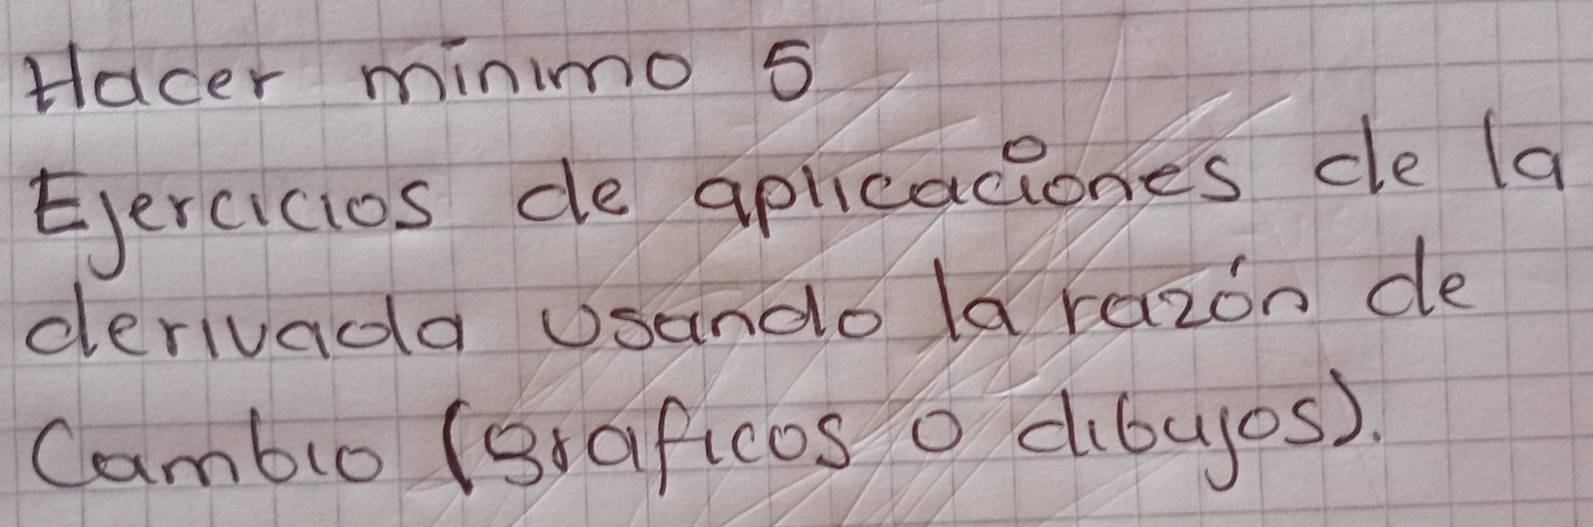 Hacer mínimo 5
Ejercicios de aplicaciones de la
derivada usando la razón de
Cambio (gráficos o dibujos).